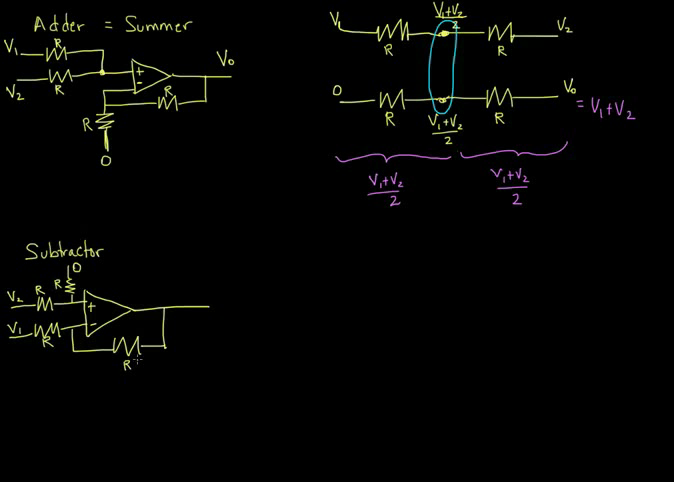 Adder = Summer
V₁
R
V₂
R
+
-
V₀
R
R
0
V₁
R
V₁+V₂
2
R
V₂
0
R
V₁+V₂
2
R
V₀
= V₁+V₂
V₁+V₂
2
V₁+V₂
2
Subtractor
0
R
V₂
R
+
V₁
R
-
R